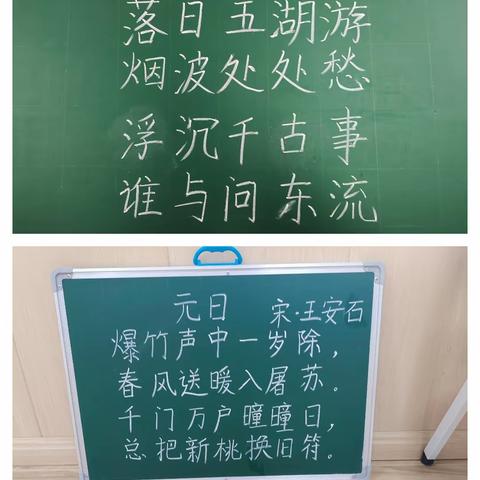 落日五湖游
烟波处处愁
浮沉千古事
谁与问东流
元日 宋·王安石
爆竹声中一岁除，
春风送暖入屠苏。
千门万户曈曈日，
总把新桃换旧符。